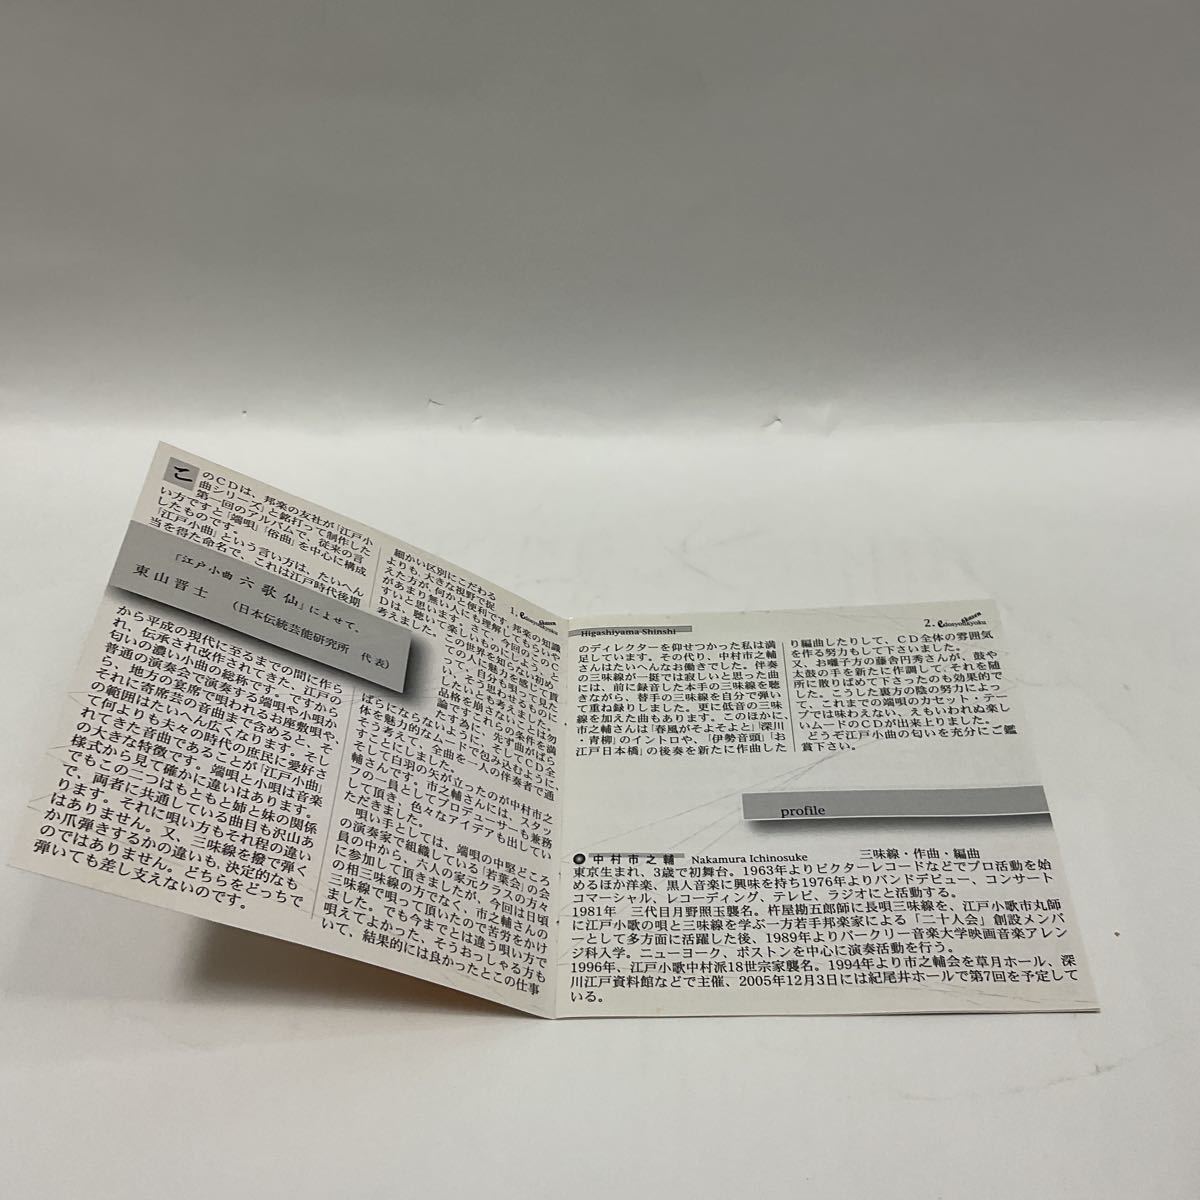 こ
のCDは、邦楽の友社が「江戸小
曲シリーズ」と銘打って制作した
第一回のアルバムで、従来の言
い方ですと「端唄」「俗曲」を中心に構成
したものです。
「江戸小曲」という言い方は、たいへん
当を得た命名で、これは江戸時代後期
「江戸小曲 六歌仙」によせて。
東山晋士 (日本伝統芸能研究所 代表)
から平成の現代に至るまでの間に作ら
れ、伝承され改作されてきた、江戸の
匂いの濃い小曲の総称です。ですから
普通の演奏会で演奏する端唄や小唄か
ら、地方の宴席で唄われるお座敷唄や、
それに寄席芸の音曲まで含めると、そ
の範囲はたいへん広くなります。そし
て何よりも夫々の時代の庶民に愛好さ
れてきた音曲であることが「江戸小曲」
の大きな特徴です。端唄と小唄は音楽
様式から見て確かに違いはあります。
でもこの二つはもともと姉と妹の関係
で、両者に共通している曲目も沢山あ
ります。それに唄い方もそれ程の違い
はありません。又、三味線を撥で弾く
か爪弾きするかの違いも、決定的なも
のではありません。どちらをどっちで
弾いても差し支えないのです。
1.
細かい区別にこだわる
よりも、大きな視野で捉
えた方が、何かと便利です。邦楽の知識や
があまり無い人にも理解してもらい
すいと思います。さて、今回の
考えました。
ただきました。
唄い手としては、端唄の中堅どころ
員の中から、六人の家元クラスの方々
に参加して頂きましたが、今回は日頃
の相三味線の方でなく、市之輔さんの
三味線で唄って頂いたので苦労をかけ
ました。でも今までとは違う唄い方も
唄えてよかった、そうおっしゃる方も
いて、結果的には良かったとこの仕事
2.
Higashiyama-Shinshi
のディレクターを仰せつかった私は満
足しています。その代り、中村市之輔
さんはたいへんなお働きでした。伴奏
の三味線が一挺では寂しいと思った曲
には、前に録音した本手の三味線を聴
きながら、替手の三味線を自分で弾い
て重ね録りしました。更に低音の三味
線を加えた曲もあります。このほかに、
市之輔さんは「春風がそよそよと」「深川」
・青柳」のイントロや、「伊勢音頭」「お
江戸日本橋」の後奏を新たに作曲した
り編曲したりして、CD全体の雰囲気
を作る努力もして下さいました。
又、お囃子方の藤舎円秀さんが、鼓や
太鼓の手を新たに作調して、それを随
所に散りばめて下さったのも効果的で
した。こうした裏方の陰の努力によっ
て、これまでの端唄のカセット・テー
プでは味わえない、えもいわれぬ楽し
いムードのCDが出来上りました。
どうぞ江戸小曲の匂いを充分にご鑑
賞下さい。
profile
中村市之輔 Nakamura Ichinosuke 三味線・作曲・編曲
東京生まれ、3歳で初舞台。1963年よりビクターレコードなどでプロ活動を始
めるほか洋楽、黒人音楽に興味を持ち1976年よりバンドデビュー、コンサート
コマーシャル、レコーディング、テレビ、ラジオにと活動する。
1981年 三代目月野照玉襲名。杵屋勘五郎師に長唄三味線を、江戸小歌市丸師
に江戸小歌の唄と三味線を学ぶ一方若手邦楽家による「二十人会」創設メンバ
ーとして多方面に活躍した後、1989年よりバークリー音楽大学映画音楽アレン
ジ科入学。ニューヨーク、ボストンを中心に演奏活動を行う。
1996年、江戸小歌中村派18世宗家襲名。1994年より市之輔会を草月ホール、深
川江戸資料館などで主催、2005年12月3日には紀尾井ホールで第7回を予定して
いる。